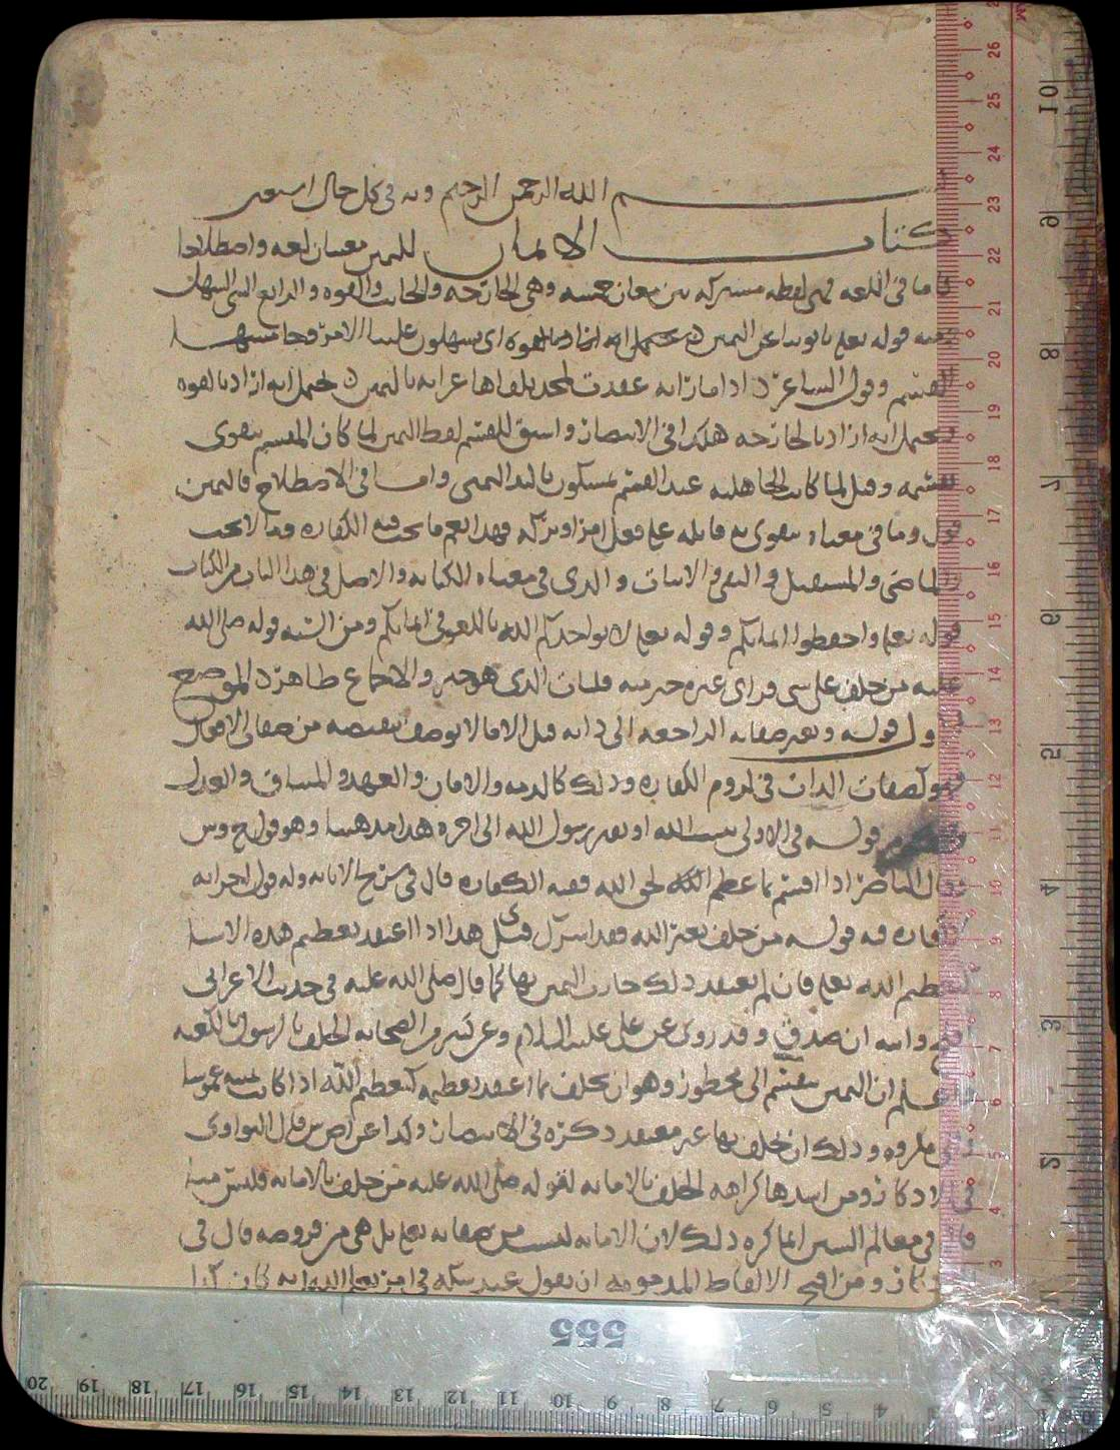 بسم الله الرحمن الرحيم وبه في كل حال استعين
كتاب الايمان لليمين معنيان لغه واصطلاحا
اما في اللغه فهي لفظه مشتركه بين معان خمسه وهي الجارحه والجانب والقوه والرابع الشي السهل
ومنه قوله تعلى تاتوننا عن اليمين يحتمل انه اراد بالقوه اي تسهلون علينا الامر
القسم وقول الشاعر اذا ما رايه عقدت لمجد تلقاها عرابه باليمين يحتمل انه اراد بالقوه
ويحتمل انه اراد بالجارحه هكذا في الانتصار واشتق للقسم لفظ اليمين لما كان المقسم يتقوى
بقسمه وقيل لما كانت الجاهليه عند القسم يمسكون باليد اليمنى واما في الاصطلاح فاليمين
قول وما في معناه يتقوى به قايله على فعل امر او تركه فهذا يعم ما يجب فيه الكفاره وما لا يجب
الماضي والمستقبل والنفي والاثبات والذي في معناه الكتابه والاصل في هذا الباب من الكتاب
قوله تعلى واحفظوا ايمانكم وقوله تعلى لا يواخذكم الله باللغو في ايمانكم ومن السنه قوله صلى الله
عليه من حلف على شي فراى غيره خير منه فليات الذي هو خير والاجماع ظاهر
قوله وبغير صفاته الراجعه الى ذاته قيل الا ما لا يوصف بنقيضه من صفات الافعال
فهو كصفات الذات في لزوم الكفاره وذلك كالذمه والامان والعهد والميثاق والعدل
قوله في الاولى او بغير رسول الله الى اخره هذا مذهبنا وهو قول
وقال الناصر اذا اقسم بما عظم الله لحق الله ففيه الكفاره قال في
كفاره فيه قوله من حلف بغير الله فقد اشرك قيل هذا اذا اعتقد تعظيم هذه الاشيا
كتعظيم الله تعلى فان لم يعتقد ذلك جازت اليمين بها كما قال صلى الله عليه في حديث الاعرابي
افلح وابيه ان صدق وقد روي عن علي عليه السلام وعن كثير من الصحابه الحلف بالرسول وبالكعبه
واعلم ان اليمين ينقسم الى محظور وهو ان يحلف بما اعتقد تعظيمه كتعظيم الله اذا كانت يمينه غموسا
والى مكروه وذلك ان يحلف بها غير معتقد ذكره في الانتصار وكذا عن قال النواوي
في الاذكار ومن اشدها كراهه الحلف بالامانه لقوله صلى الله عليه من حلف بالامانه فليس منا
قال في معالم السنن انما كره ذلك لان الامانه ليست من صفاته تعلى بل هي من فروضه قال في
الاذكار ومن اقبح الالفاظ المذمومه ان يقول عند شكه في امر يعلم الله انه كان كذا
555